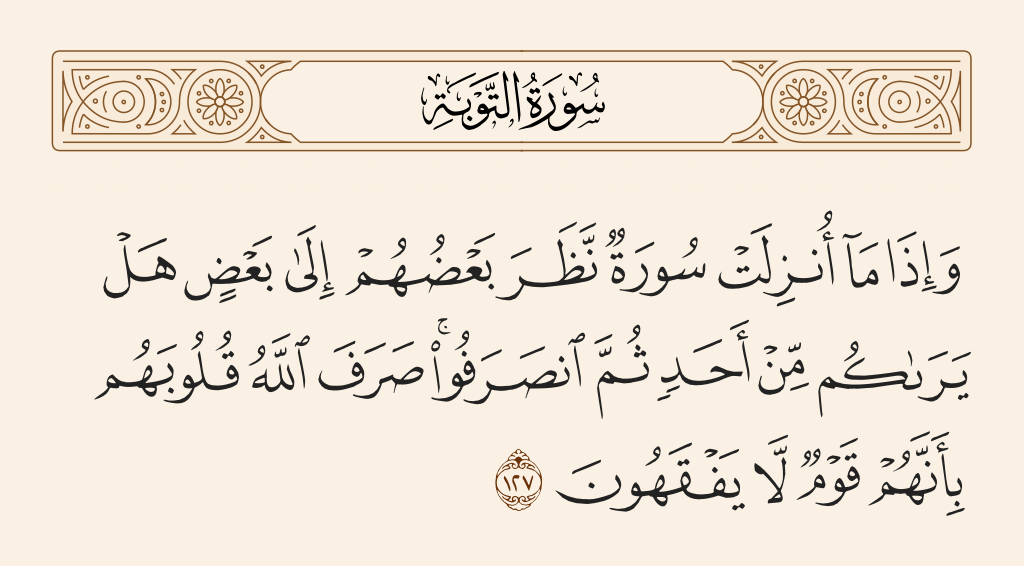 سُورَةُ التَّوۡبَةِ
وَإِذَا مَآ أُنزِلَتۡ سُورَةٌ نَّظَرَ بَعۡضُهُمۡ إِلَىٰ بَعۡضٍ هَلۡ
يَرَىٰكُم مِّنۡ أَحَدٖ ثُمَّ ٱنصَرَفُواْۚ صَرَفَ ٱللَّهُ قُلُوبَهُم
بِأَنَّهُمۡ قَوۡمٌ لَّا يَفۡقَهُونَ ١٢٧